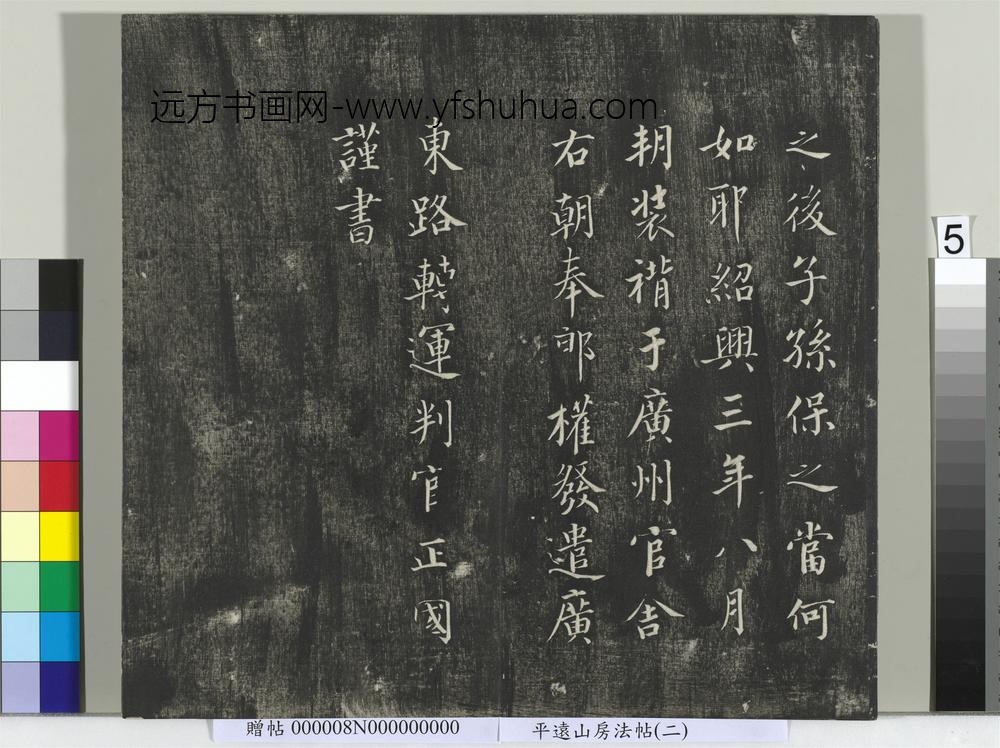 远方书画网-www.yfshuhua.com
之後子孫保之當何
如耶紹興三年八月
朔装褙于廣州官舍
右朝奉郎權發遣廣
東路轉運判官正國
謹書
5
贈帖 000008N000000000
平遠山房法帖(二)